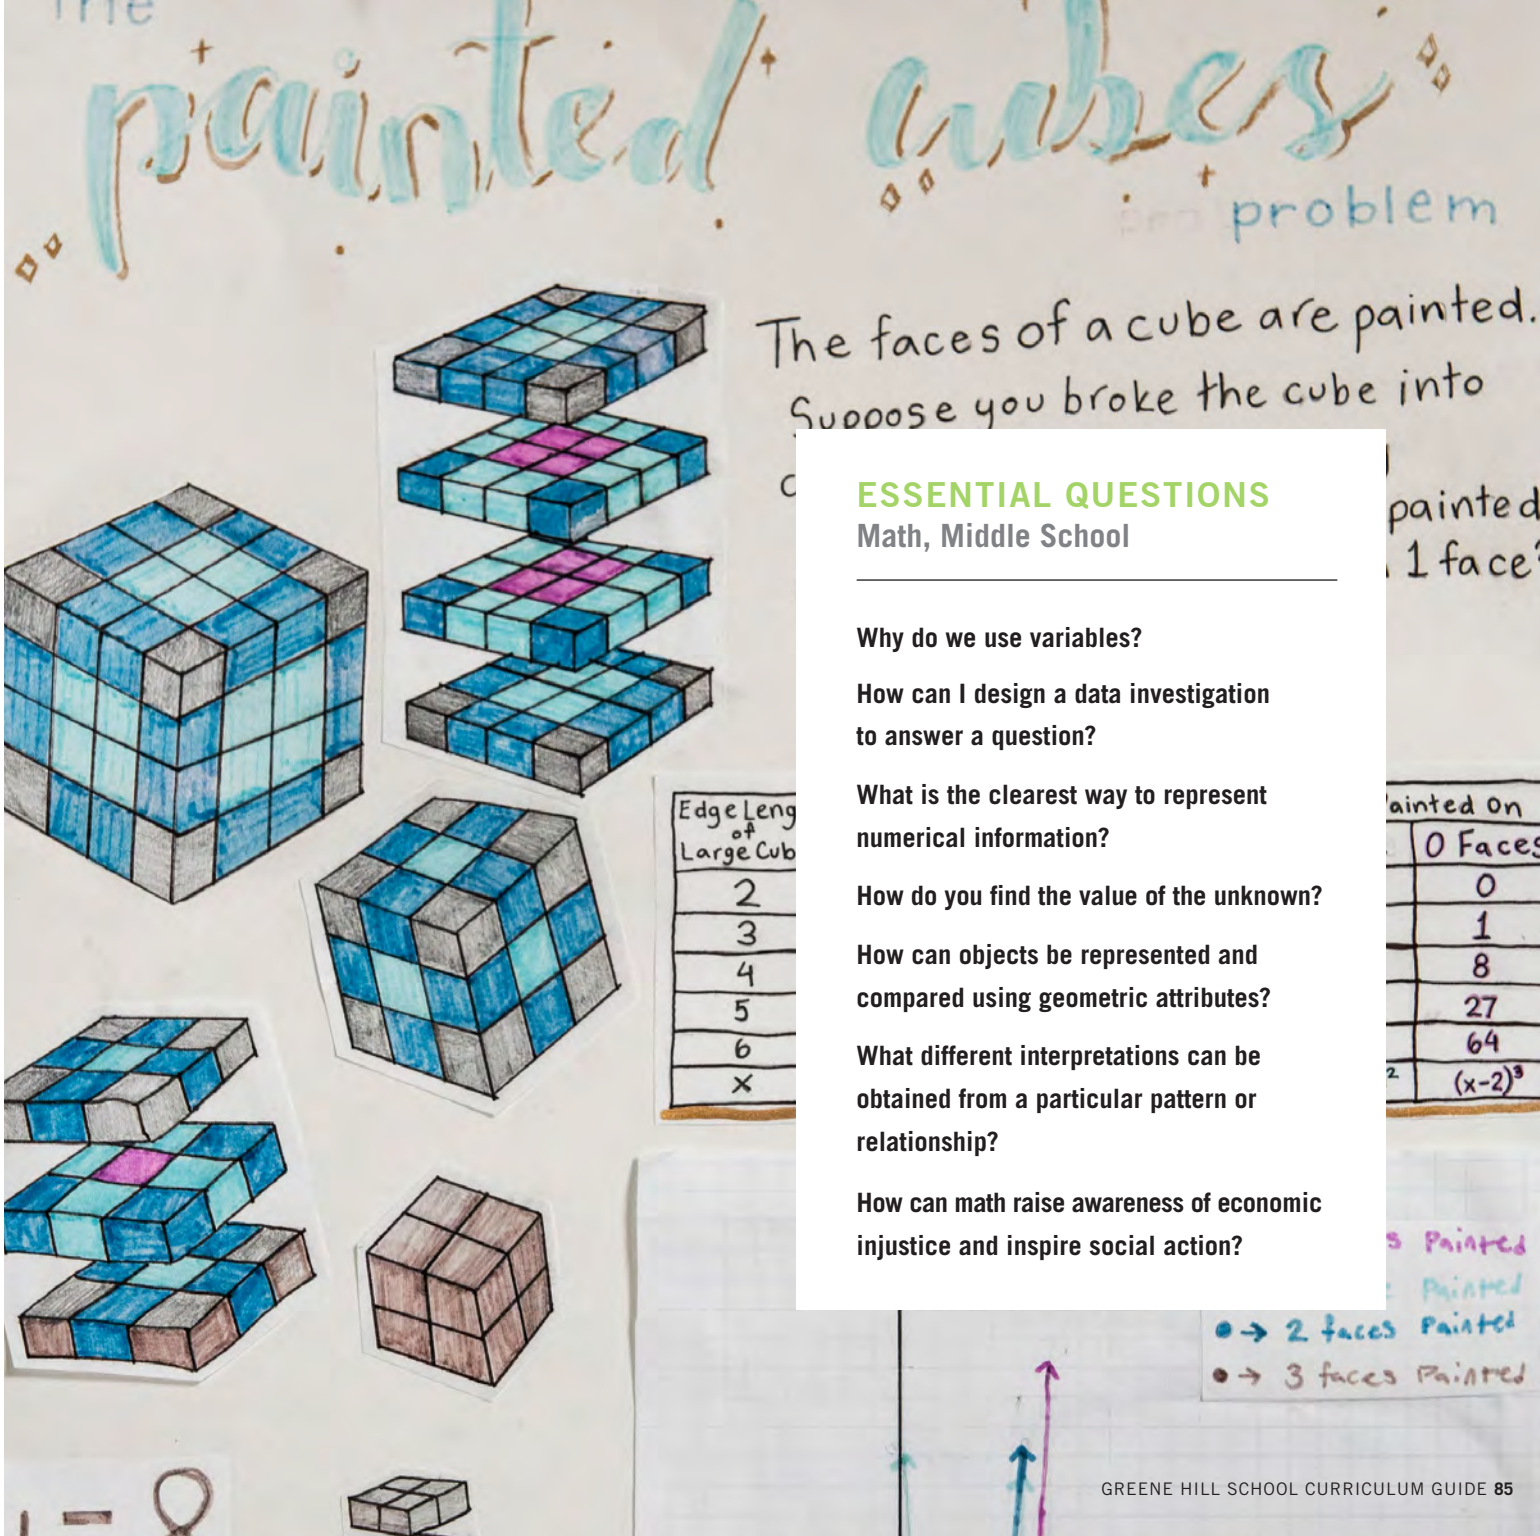 The
painted cubes
problem
The faces of a cube are painted.
Suppose you broke the cube into
painted
1 face?
ESSENTIAL QUESTIONS
Math, Middle School
Why do we use variables?
How can I design a data investigation
to answer a question?
What is the clearest way to represent
numerical information?
How do you find the value of the unknown?
How can objects be represented and
compared using geometric attributes?
What different interpretations can be
obtained from a particular pattern or
relationship?
How can math raise awareness of economic
injustice and inspire social action?
Edge
of
Large
2
3
4
5
6
x
Painted On
0 Faces
0
1
8
27
64
(x-2)³
Painted
Painted
→ 2 faces Painted
→ 3 faces Painted
8
GREENE HILL SCHOOL CURRICULUM GUIDE 85